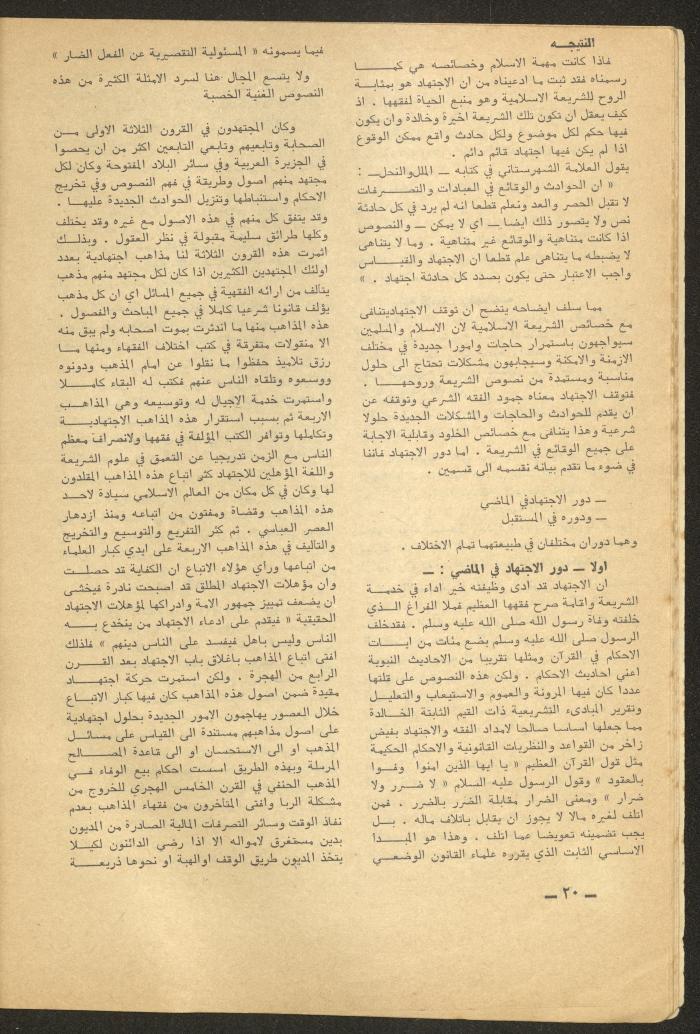 النتيجـــه
فاذا كانت مهمة الاسلام وخصائصه هي كمـــا
رسمناه فقد ثبت ما ادعيناه من ان الاجتهاد هو بمثابة
الروح للشريعة الاسلامية وهو منبع الحياة لفقهها . اذ
كيف يعقل ان تكون تلك الشريعة اخيرة وخالدة وان يكون
فيها حكم لكل موضوع ولكل حادث واقع ممكن الوقوع
اذا لم يكن فيها اجتهاد قائم دائم .
يقول العلامة الشهرستاني في كتابه ــ المللوالنحلــ :
« ان الحوادث والوقائع في العبادات والتصـــرفات
لا تقبل الحصر والعد ونعلم قطعا انه لم يرد في كل حادثة
نص ولا يتصور ذلك ايضا ــ اي لا يمكن ــ والنصوص
اذا كانت متناهية والوقائع غير متناهية . وما لا يتناهى
لا يضبطه ما يتناهى علم قطعا ان الاجتهاد والقيــاس
واجب الاعتبار حتى يكون بصدد كل حادثة اجتهاد . »
مما سلف ايضاحه يتضح ان توقف الاجتهاديتنافى
مع خصائص الشريعة الاسلامية لان الاسلام والمسلمين
سيواجهون باستمرار حاجات وامورا جديدة في مختلف
الازمنة والامكنة وسيجابهون مشكلات تحتاج الى حلول
مناسبة ومستمدة من نصوص الشريعة وروحهــا .
فتوقف الاجتهاد معناه جمود الفقه الشرعي وتوقفه عن
ان يقدم للحوادث والحاجات والمشكلات الجديدة حلولا
شرعية وهذا يتنافى مع خصائص الخلود وقابلية الاجابة
على جميع الوقائع في الشريعة . اما دور الاجتهاد فاننا
في ضوء ما تقدم بيانه نقسمه الى قسمين .
ــ دور الاجتهادفي الماضي
ــ ودوره في المستقبل
وهما دوران مختلفان في طبيعتهما تمام الاختلاف .
اولا ــ دور الاجتهاد في الماضي : ــ
ان الاجتهاد قد ادى وظيفته خير اداء في خدمـة
الشريعة واقامة صرح فقهها العظيم فملا الفراغ الــذي
خلفته وفاة رسول الله صلى الله عليه وسلم . فقدخلف
الرسول صلى الله عليه وسلم بضع مئات من ايــات
الاحكام في القرآن ومثلها تقريبا من الاحاديث النبوية
اعني احاديث الاحكام . ولكن هذه النصوص على قلتها
عددا كان فيها المرونة والعموم والاستيعاب والتعليــل
وتقرير المبادىء التشريعية ذات القيم الثابتة الخــالدة
مما جعلها اساسا صالحا لامداد الفقه والاجتهاد بفيض
زاخر من القواعد والنظريات القانونية والاحكام الحكيمة
مثل قول القرآن العظيم « يا ايها الذين امنوا وفــوا
بالعقود » وقول الرسول عليه السلام « لا ضــرر ولا
ضرار » ومعنى الضرار مقابلة الضرر بالضرر . فمن
اتلف لغيره مالا لا يجوز ان يقابل باتلاف ماله . بــل
يجب تضمينه تعويضا عما اتلف . وهذا هو المبــدا
الاساسي الثابت الذي يقرره علماء القانون الوضعــي
فيما يسمونه « المسئولية التقصيرية عن الفعل الضار »
ولا يتسع المجال هنا لسرد الامثلة الكثيرة من هذه
النصوص الغنية الخصبة
وكان المجتهدون في القرون الثلاثة الاولى مــن
الصحابة وتابعيهم وتابعي التابعين اكثر من ان يحصوا
في الجزيرة العربية وفي سائر البلاد المفتوحة وكان لكل
مجتهد منهم اصول وطريقة في فهم النصوص وفي تخريج
الاحكام واستنباطها وتنزيل الحوادث الجديدة عليهـا .
وقد يتفق كل منهم في هذه الاصول مع غيره وقد يختلف
وكلها طرائق سليمة مقبولة في نظر العقول . وبذلــك
اثمرت هذه القرون الثلاثة لنا مذاهب اجتهادية بعدد
اولئك المجتهدين الكثيرين اذا كان لكل مجتهد منهم مذهب
يتالف من ارائه الفقهية في جميع المسائل اي ان كل مذهب
يؤلف قانونا شرعيا كاملا في جميع المباحث والفصول .
هذه المذاهب منها ما اندثرت بموت اصحابه ولم يبق منه
الا منقولات متفرقة في كتب اختلاف الفقهاء ومنها مــا
رزق تلاميذ حفظوا ما نقلوا عن امام المذهب ودونوه
ووسعوه وتلقاه الناس عنهم فكتب له البقاء كامـــلا
واستمرت خدمة الاجيال له وتوسيعه وهي المذاهــب
الاربعة ثم بسبب استقرار هذه المذاهب الاجتهاديـــة
وتكاملها وتوافر الكتب المؤلفة في فقهها ولانصراف معظم
الناس مع الزمن تدريجيا عن التعمق في علوم الشريعة
واللغة المؤهلين للاجتهاد كثر اتباع هذه المذاهب المقلدون
لها وكان في كل مكان من العالم الاسلامي سيادة لاحــد
هذه المذاهب وقضاة ومفتون من اتباعه ومنذ ازدهار
العصر العباسي . ثم كثر التفريع والتوسيع والتخريج
والتاليف في هذه المذاهب الاربعة على ايدي كبار العلماء
من اتباعها وراي هؤلاء الاتباع ان الكفاية قد حصلــت
وان مؤهلات الاجتهاد المطلق قد اصبحت نادرة فيخشى
ان يضعف تمييز جمهور الامة وادراكها لمؤهلات الاجتهاد
الحقيقية « فيقدم على ادعاء الاجتهاد من ينخدع بـــه
الناس وليس باهل فيفسد على الناس دينهم » فلذلك
افتى اتباع المذاهب باغلاق باب الاجتهاد بعد القــرن
الرابع من الهجرة . ولكن استمرت حركة اجتهـــاد
مقيدة ضمن اصول هذه المذاهب كان فيها كبار الاتبـاع
خلال العصور يهاجمون الامور الجديدة بحلول اجتهادية
على اصول مذاهبهم مستندة الى القياس على مسائــل
المذهب او الى الاستحسان او الى قاعدة المصـــالح
المرسلة وبهذه الطريق اسست احكام بيع الوفاء فــي
المذهب الحنفي في القرن الخامس الهجري للخروج من
مشكلة الربا وافتى المتاخرون من فقهاء المذاهب بعدم
نفاذ الوقت وسائر التصرفات المالية الصادرة من المديون
بدين مستغرق لامواله الا اذا رضي الدائنون لكيـلا
يتخذ المديون طريق الوقف اوالهبة او نحوها ذريعـــة
ــ ٢٠ ــ